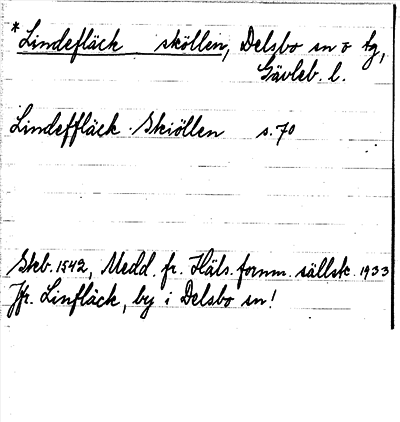 *Lindefläck sköllen, Delsbo sn o tg,
Gävleb. l.
Lindeffläck Skiöllen s. 70
Skb. 1542, Medd. fr. Häls. fornm. sällsk. 1933
Jfr. Linfläck, by i Delsbo sn!